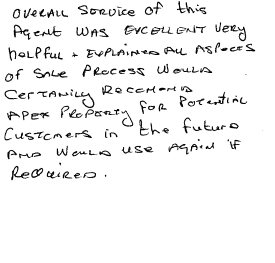 OVERALL SERVICE of this
Agent WAS EXCELLENT VERY
helPful + EXPLAINED ALL ASPECES
OF SALE PROCESS WOULD
CERTANILY RECOMEND
APEX PROPERTY FOR POTENTIAL
CUSTOMERS in the future
AND WOULD USE AGAIN IF
REQUIRED.